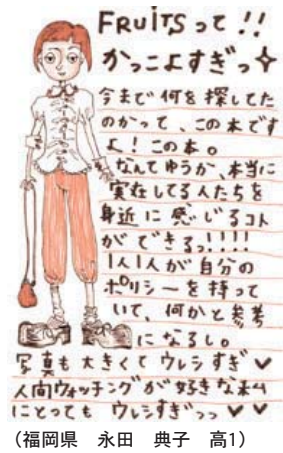 FRUiTSって!!
かっこよすぎっ✧
今まで何を探してた
のかって、この本です
よ!この本。
なんてゆうか、本当に
実在してる人たちを
身近に感じるコト
ができるっ!!!!
1人1人が自分の
ポリシーを持って
いて、何かと参考
になるし。
写真も大きくてウレシすぎ♥
人間ウォッチングが好きな私
にとっても ウレシすぎっっ♥♥
(福岡県 永田 典子 高1)